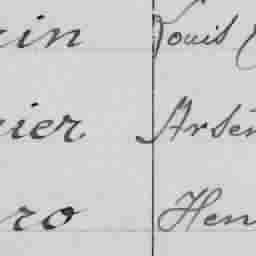 rin Louis C
nier Arsèn
ro Hen